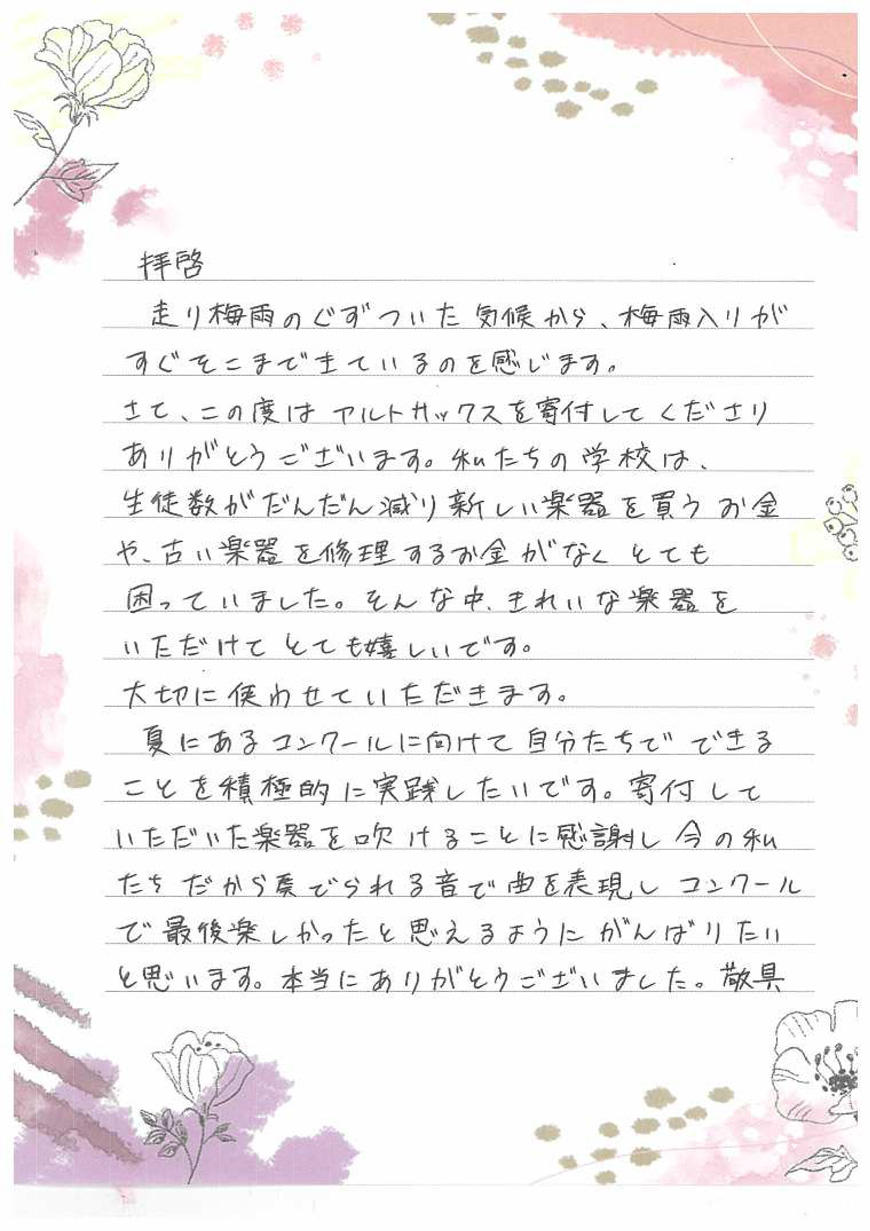 拝啓
走り梅雨のぐずついた気候から、梅雨入りが
すぐそこまできているのを感じます。
さて、この度はアルトサックスを寄付してくださり
ありがとうございます。私たちの学校は、
生徒数がだんだん減り新しい楽器を買うお金
や、古い楽器を修理するお金がなくとても
困っていました。そんな中、きれいな楽器を
いただけてとても嬉しいです。
大切に使わせていただきます。
夏にあるコンクールに向けて自分たちでできる
ことを積極的に実践したいです。寄付して
いただいた楽器を吹けることに感謝し今の私
たちだから奏でられる音で曲を表現しコンクール
で最後楽しかったと思えるようにがんばりたい
と思います。本当にありがとうございました。敬具